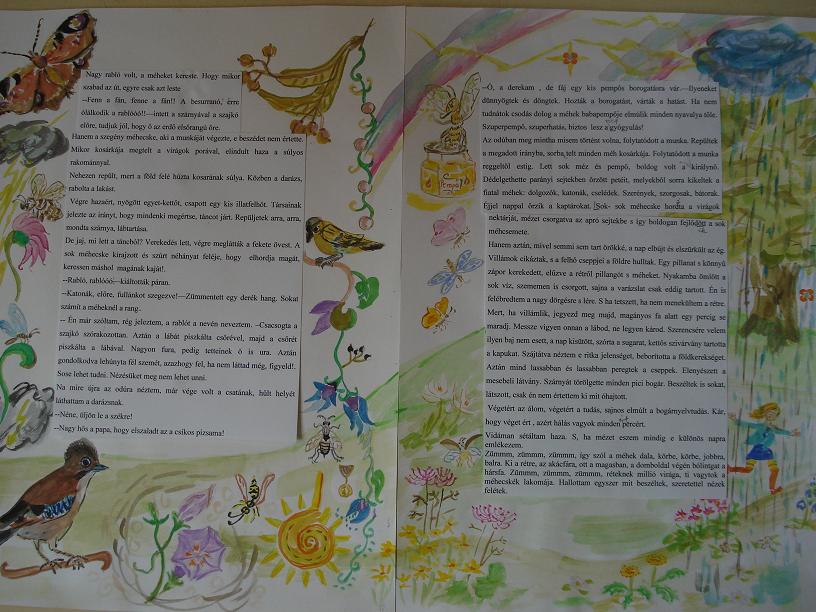 Nagy rabló volt, a méheket kereste. Hogy mikor
szabad az út, egyre csak azt leste
--Fenn a fán, fenne a fán!! A besurranó, érre
ólálkodik a rablóóó!!—intett a szárnyával a szajkó
előre, tudjuk jól, hogy ő az erdő elsőrangú őre.
Hanem a szegény méhecske, aki a munkáját végezte, e beszédet nem értette.
Mikor kosárkája megtelt a virágok porával, elindult haza a súlyos
rakománnyal.
Nehezen repült, mert a föld felé húzta kosarának súlya. Közben a darázs,
rabolta a lakást.
Végre hazaért, nyögött egyet-kettőt, csapott egy kis illatfelhőt. Társainak
jelezte az irányt, hogy mindenki megértse, táncot járt. Repüljetek arra, arra,
mondta szárnya, lábtartása.
De jaj, mi lett a táncból? Verekedés lett, végre meglátták a fekete övest. A
sok méhecske kirajzott és szúrt néhányat feléje, hogy elhordja magát,
keressen máshol magának kaját!.
--Rabló, rablóóó—kiáltották páran.
--Katonák, előre, fullánkot szegezve!—Zümmentett egy derék hang. Sokat
számít a méheknél a rang.
-- Én már szóltam, rég jeleztem, a rablót a nevén neveztem. –Csacsogta a
szajkó szórakozottan. Aztán a lábát piszkálta csőrével, majd a csőrét
piszkálta a lábával. Nagyon fura, pedig tetteinek ő is ura. Aztán
gondolkodva lehúnyta fél szemét, azazhogy fel, ha nem láttad még, figyeld!.
Sose lehet tudni. Nézésüket meg nem lehet unni.
Na mire újra az odúra néztem, már vége volt a csatának, hűlt helyét
láthattam a darázsnak.
--Néne, üljön le a székre!
--Nagy hős a papa, hogy elszaladt az a csíkos pizsama!
--Ó, a derekam , de fáj egy kis pempős borogatásra vár.—Ilyeneket
dünnyögtek és döngtek. Hozták a borogatást, várták a hatást. Ha nem
tudnátok csodás dolog a méhek babapempője elmúlik minden nyavalya tőle.
Szuperpempő, szuperhatás, biztos lesz a gyógyulás!
Az odúban meg mintha misem történt volna, folytatódott a munka. Repültek
a megadott irányba, sorba, telt minden méh kosárkája. Folytatódott a munka
reggeltől estig. Lett sok méz és pempő, boldog volt a királynő.
Dédelgethette parányi sejtekben őrzött petéit, melyekből sorra kikeltek a
fiatal méhek: dolgozók, katonák, cselédek. Szerények, szorgosak, bátorak.
Éjjel nappal őrzik a kaptárokat. Sok- sok méhecske hordta a virágok
nektárját, mézet csorgatva az apró sejtekbe s így boldogan fejlődött a sok
méhcsemete.
Hanem aztán, mivel semmi sem tart örökké, a nap elbújt és elszürkült az ég.
Villámok cikáztak, s a felhő cseppjei a földre hulltak. Egy pillanat s könnyű
zápor kerekedett, elűzve a rétről pillangót s méheket. Nyakamba ömlött a
sok víz, szememen is csorgott, sajna a varázslat csak eddig tartott. Én is
felébredtem a nagy dörgésre s lére. S ha tetszett, ha nem menekültem a rétre.
Mert, ha villámlik, jegyezd meg majd, magányos fa alatt egy percig se
maradj. Messze vigyen onnan a lábod, ne legyen károd. Szerencsére velem
ilyen baj nem esett, a nap kisütött, szórta a sugarat, kettős szivárvány tartotta
a kapukat. Szájtátva néztem e ritka jelenséget, beborította a földkerekséget.
Aztán mind lassabban és lassabban peregtek a cseppek. Elenyészett a
mesebeli látvány. Szárnyát törölgette minden pici bogár. Beszéltek is sokat,
látszott, csak én nem értettem ki mit óhajtott.
Végetért az álom, végetért a tudás, sajnos elmúlt a bogárnyelvtudás. Kár,
hogy véget ért , azért hálás vagyok minden percért.
Vidáman sétáltam haza. S, ha mézet eszem mindig e különös napra
emlékezem.
Zümmm, zümmm, zümmm, így szól a méhek dala, körbe, körbe, jobbra,
balra. Ki a rétre, az akácfára, ott a magasban, a domboldal végén bólintgat a
hársfa. Zümmm, zümmm, zümmm, réteknek millió virága, ti vagytok a
méhecskék lakomája. Hallottam egyszer mit beszéltek, szeretettel nézek
felétek.
Pempő